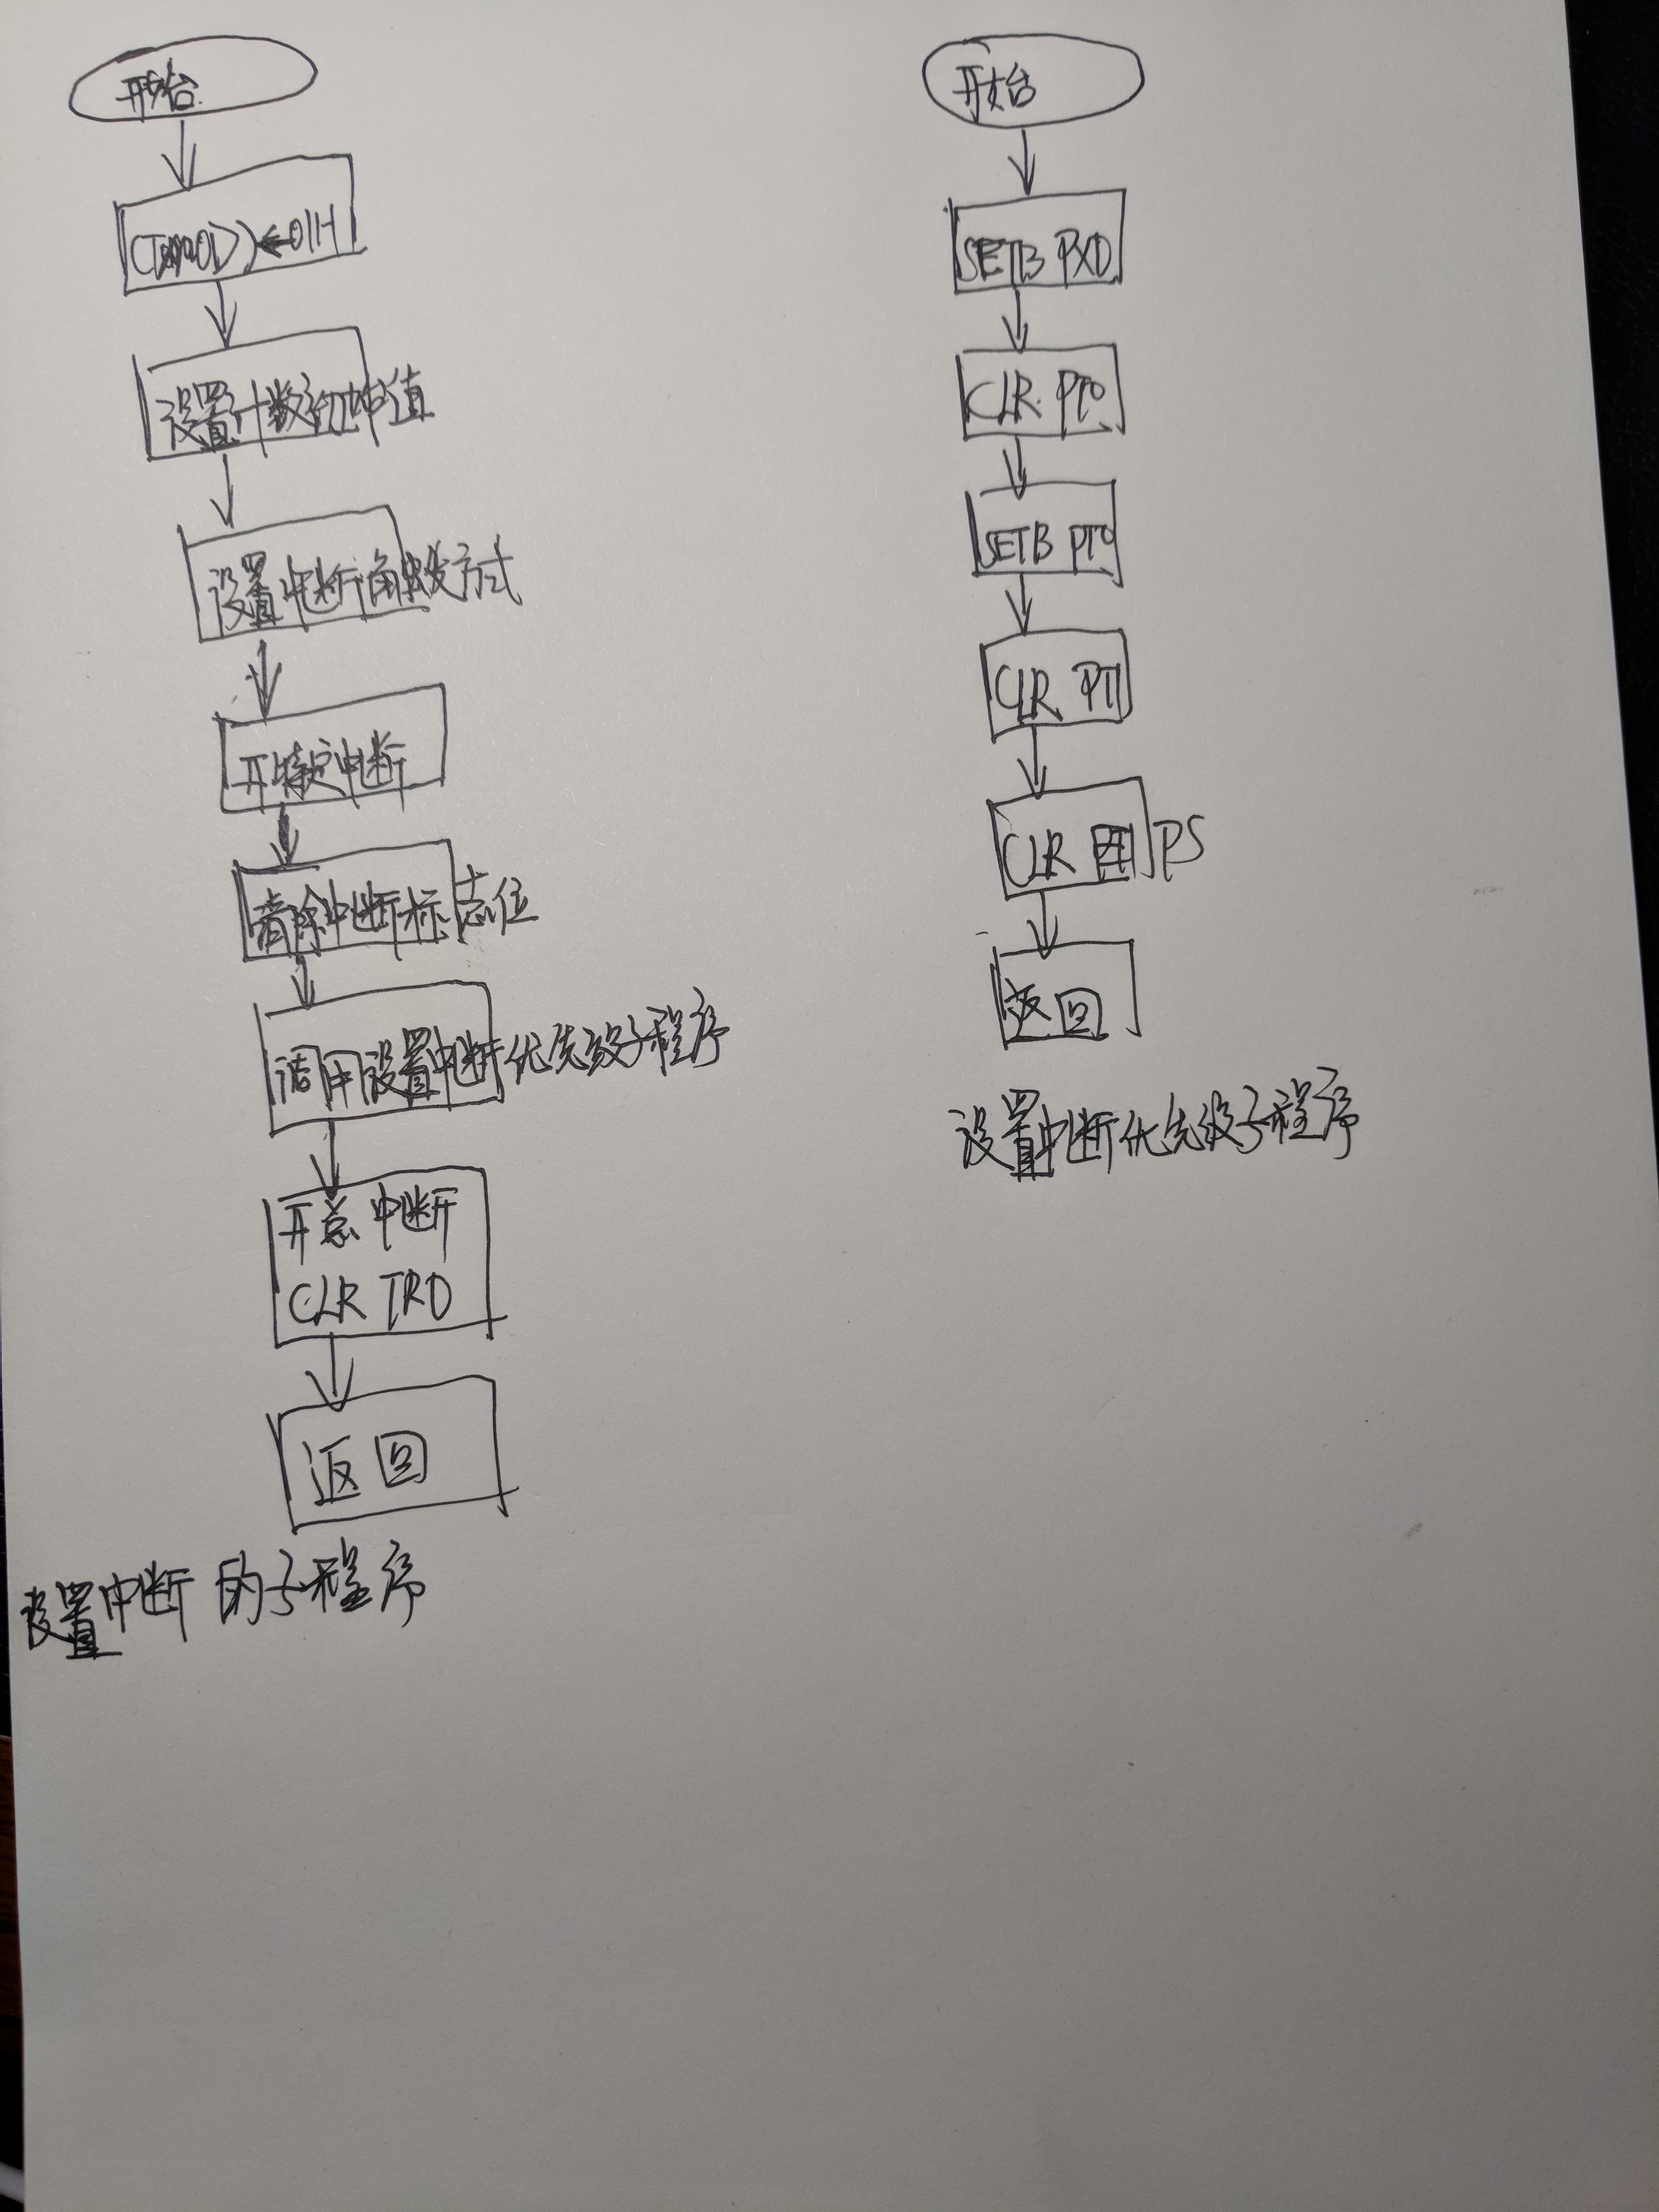 开始
(TMOD)←01H
设置计数初值
设置中断触发方式
开特定中断
清除中断标志位
调用设置中断优先级子程序
开总中断
CLR TR0
返回
设置中断的子程序
开始
SETB PX0
CLR PT0
SETB PT0
CLR PT1
CLR PS
返回
设置中断优先级子程序